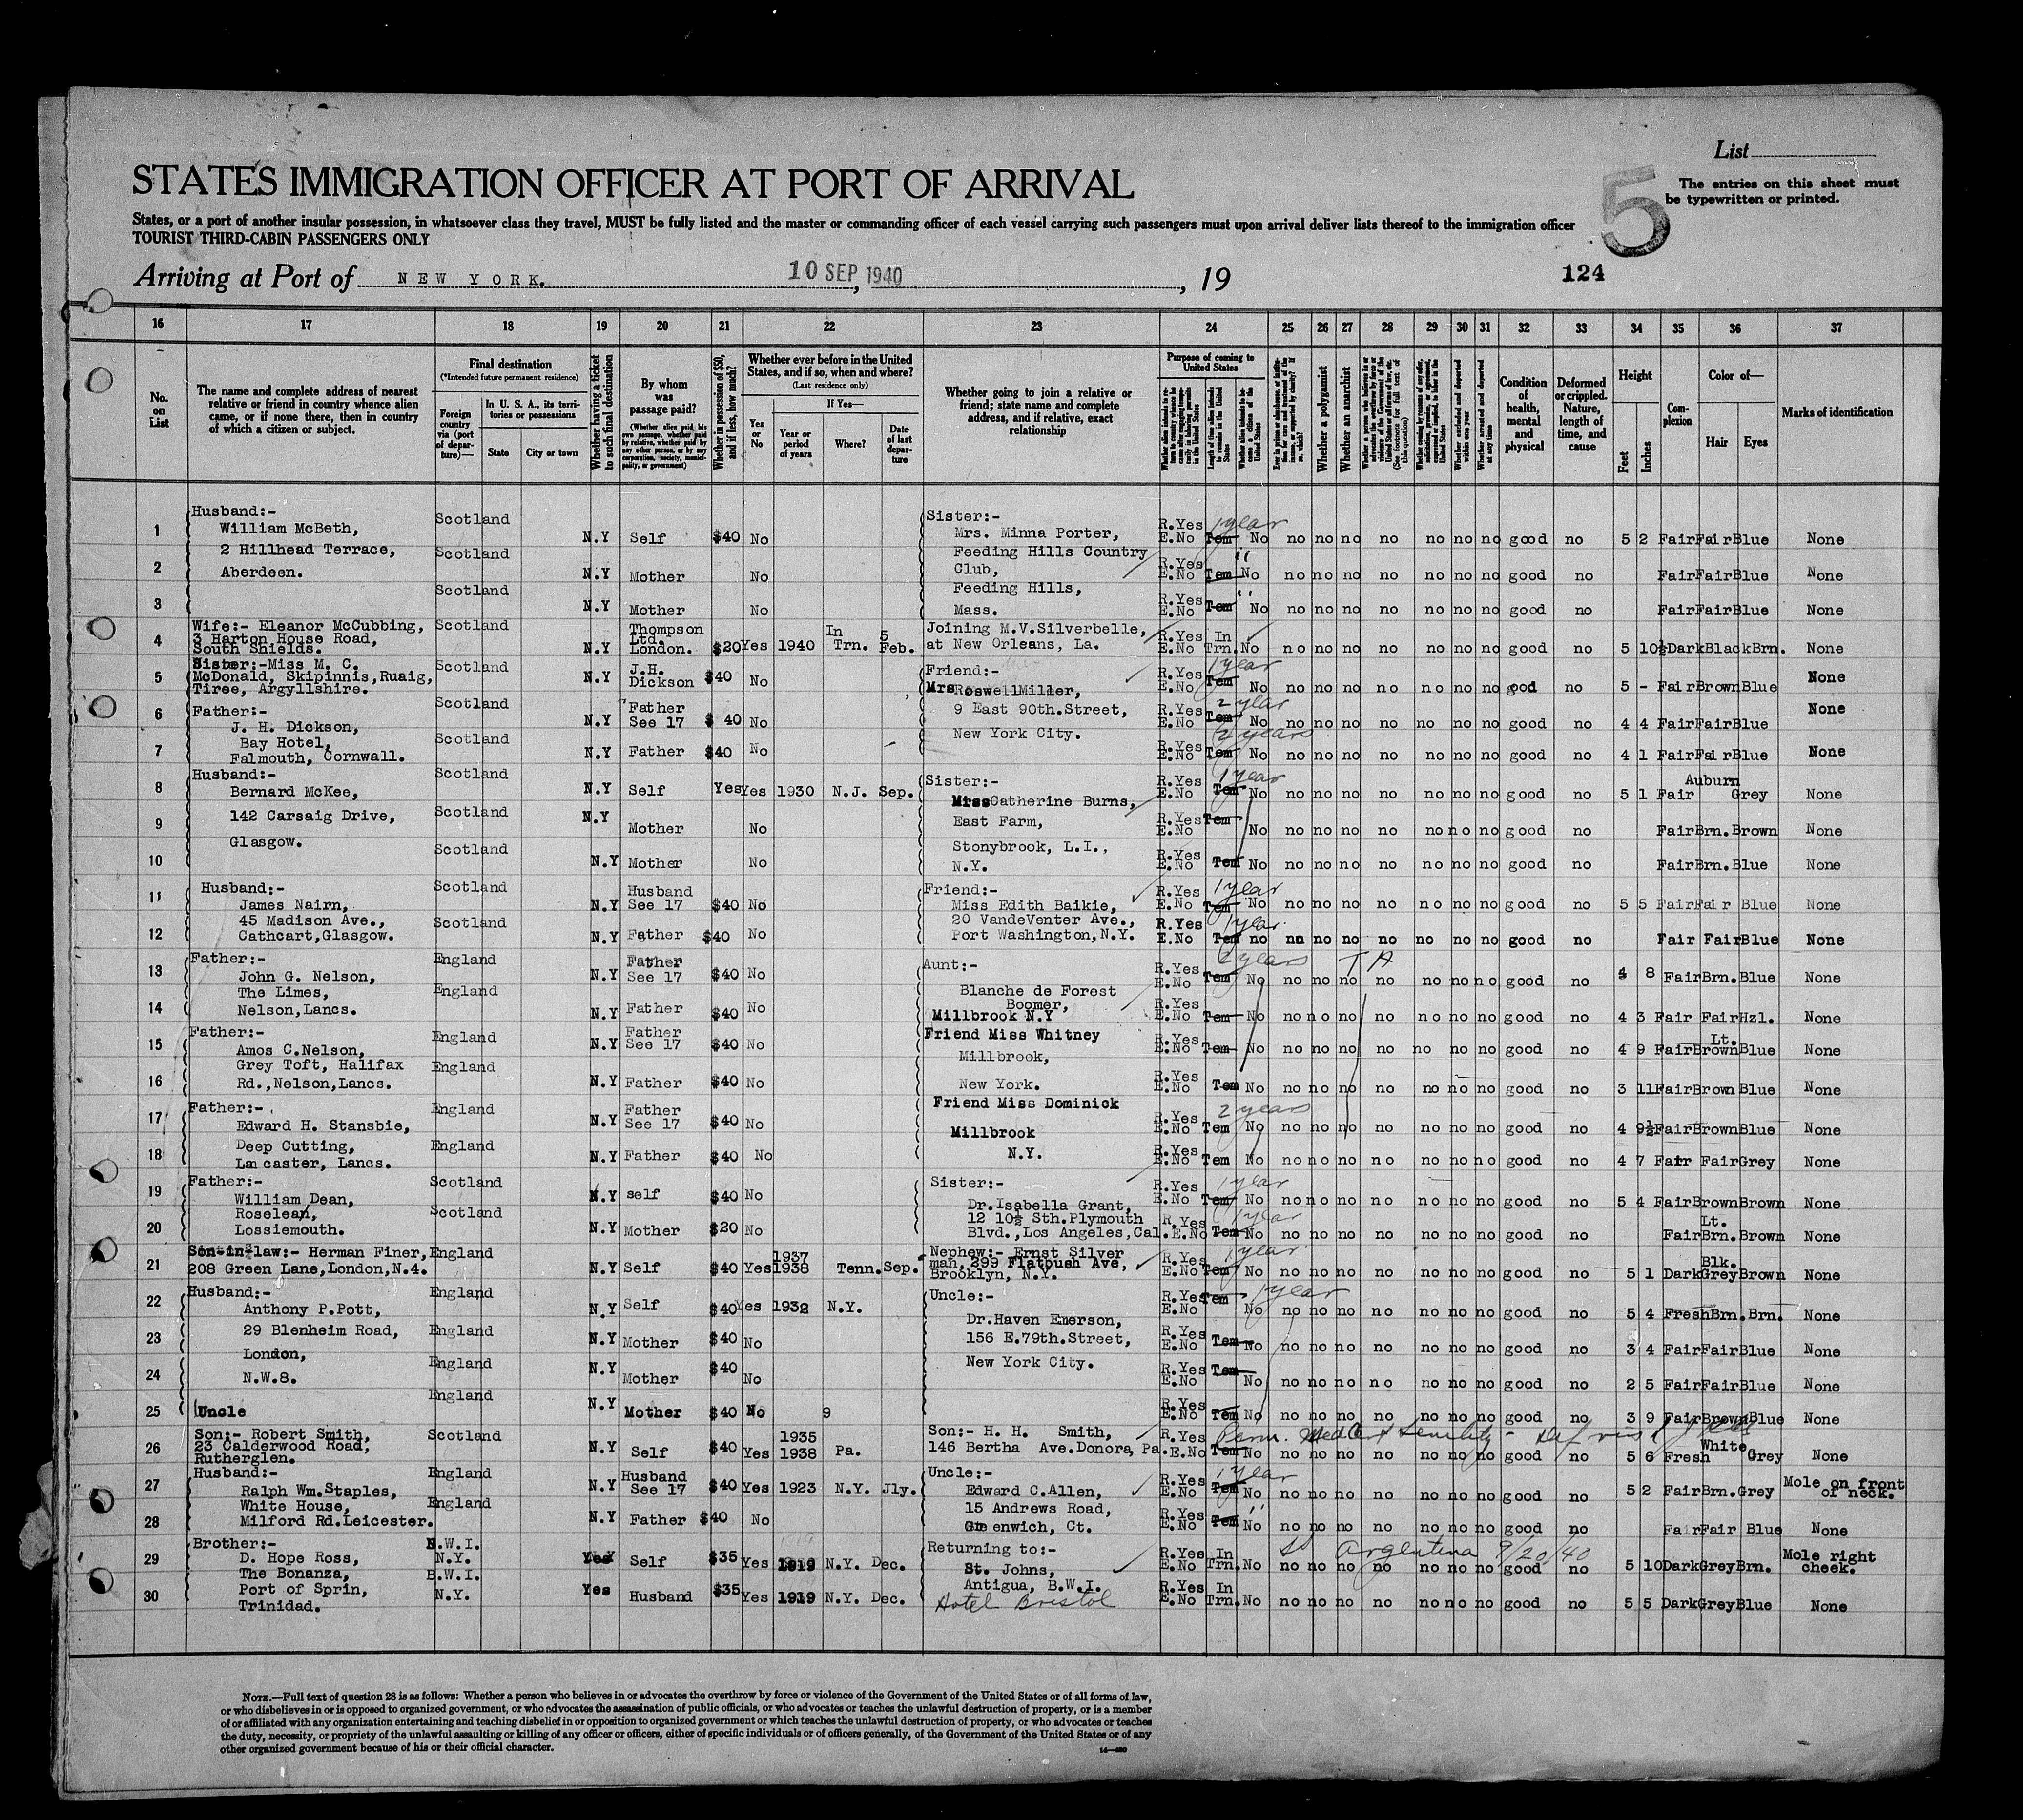 List
5
The entries on this sheet must
be typewritten or printed.
STATES IMMIGRATION OFFICER AT PORT OF ARRIVAL
States, or a port of another insular possession, in whatsoever class they travel, MUST be fully listed and the master or commanding officer of each vessel carrying such passengers must upon arrival deliver lists thereof to the immigration officer
TOURIST THIRD-CABIN PASSENGERS ONLY
Arriving at Port of NEW YORK. 10 SEP 1940, 19
124
16 17 18 19 20 21 22 23 24 25 26 27 28 29 30 31 32 33 34 35 36 37
No. on List
The name and complete address of nearest relative or friend in country whence alien came, or if none there, then in country of which a citizen or subject.
Final destination
(*Intended future permanent residence)
Foreign country via (port of departure)—
In U. S. A., its territories or possessions
State
City or town
Whether having a ticket to such final destination
By whom was passage paid?
(Whether alien paid his own passage, whether paid by relative, whether paid by any other person, or by any corporation, society, municipality, or government)
Whether in possession of $50, and if less, how much?
Whether ever before in the United States, and if so, when and where?
(Last residence only)
Yes or No
If Yes—
Year or period of years
Where?
Date of last departure
Whether going to join a relative or friend; state name and complete address, and if relative, exact relationship
Purpose of coming to United States
Whether a polygamist
Whether an anarchist
Condition of health, mental and physical
Deformed or crippled. Nature, length of time, and cause
Height
Feet
Inches
Complexion
Color of—
Hair
Eyes
Marks of identification
1 Husband:- William McBeth, Scotland N.Y Self $40 No Sister:- Mrs. Minna Porter, R.Yes E.No Tem 1 year No no no no no no no no good no 5 2 Fair Fair Blue None
2 2 Hillhead Terrace, Scotland N.Y Mother No Feeding Hills Country Club, R.Yes E.No Tem " No no no no no no no no good no Fair Fair Blue None
3 Aberdeen. Scotland N.Y Mother No Feeding Hills, Mass. R.Yes E.No Tem " No no no no no no no no good no Fair Fair Blue None
4 Wife:- Eleanor McCubbing, 3 Harton House Road, South Shields. Scotland N.Y Thompson Ltd. London. $20 Yes 1940 In Trn. 5 Feb. Joining M.V.Silverbelle, at New Orleans, La. R.Yes E.No In Trn. No no no no no no no no good no 5 10½ Dark Black Brn. None
5 Sister:-Miss M. C. McDonald, Skipinnis, Ruaig, Tiree, Argyllshire. Scotland N.Y J.H. Dickson $40 No Friend:- Mrs Roswell Miller, R.Yes E.No Tem 1 year No no no no no no no no good no 5 - Fair Brown Blue None
6 Father:- J. H. Dickson, Scotland N.Y Father See 17 $ 40 No 9 East 90th.Street, R.Yes E.No Tem 2 year No no no no no no no no good no 4 4 Fair Fair Blue None
7 Bay Hotel, Falmouth, Cornwall. Scotland N.Y Father $40 No New York City. R.Yes E.No Tem 2 years No no no no no no no no good no 4 1 Fair Fair Blue None
8 Husband:- Bernard McKee, Scotland N.Y Self Yes Yes 1930 N.J. Sep. Sister:- Miss Catherine Burns, R.Yes E.No Tem 1 year No no no no no no no no good no 5 1 Fair Auburn Grey None
9 142 Carsaig Drive, Scotland N.Y Mother No East Farm, R.Yes E.No Tem No no no no no no no no good no Fair Brn. Brown None
10 Glasgow. Scotland N.Y Mother No Stonybrook, L.I., N.Y. R.Yes E.No Tem No no no no no no no no good no Fair Brn. Blue None
11 Husband:- James Nairn, Scotland N.Y Husband See 17 $40 No Friend:- Miss Edith Baikie, R.Yes E.No Tem 1 year No no no no no no no no good no 5 5 Fair Fair Blue None
12 45 Madison Ave., Cathcart,Glasgow. Scotland N.Y Father $40 No 20 VandeVenter Ave., Port Washington,N.Y. R.Yes E.No Tem 1 year no no no no no no no no good no Fair Fair Blue None
13 Father:- John G. Nelson, England N.Y Father See 17 $40 No Aunt:- Blanche de Forest R.Yes E.No Tem 2 years No no no no no no no no good no 4 8 Fair Brn. Blue None
14 The Limes, Nelson,Lancs. England N.Y Father $40 No Boomer, Millbrook N.Y R.Yes E.No Tem No no no no no no no no good no 4 3 Fair Fair Hzl. None
15 Father:- Amos C.Nelson, England N.Y Father See 17 $40 No Friend Miss Whitney Millbrook, R.Yes E.No Tem No no no no no no no no good no 4 9 Fair Lt. Brown Blue None
16 Grey Toft, Halifax Rd.,Nelson,Lancs. England N.Y Father $40 No New York. R.Yes E.No Tem No no no no no no no no good no 3 11 Fair Brown Blue None
17 Father:- Edward H. Stansbie, England N.Y Father See 17 $40 No Friend Miss Dominick R.Yes E.No Tem 2 years No no no no no no no no good no 4 9½ Fair Brown Blue None
18 Deep Cutting, Lancaster, Lancs. England N.Y Father $40 No Millbrook N.Y. R.Yes E.No Tem No no no no no no no no good no 4 7 Fair Fair Grey None
19 Father:- William Dean, Scotland N.Y self $40 No Sister:- Dr.Isabella Grant, R.Yes E.No Tem 1 year No no no no no no no no good no 5 4 Fair Brown Brown None
20 Roselean, Lossiemouth. Scotland N.Y Mother $20 No 12 10½ Sth.Plymouth Blvd.,Los Angeles,Cal. R.Yes E.No Tem 1 year No no no no no no no no good no Fair Lt. Brn. Brown None
21 Son-in-law:- Herman Finer, 208 Green Lane,London,N.4. England N.Y Self $40 Yes 1937 1938 Tenn. Sep. Nephew:- Ernst Silver man, 299 Flatbush Ave, Brooklyn, N.Y. R.Yes E.No Tem 1 year No no no no no no no no good no 5 1 Dark Blk. Grey Brown None
22 Husband:- Anthony P.Pott, England N.Y Self $40 Yes 1932 N.Y. Uncle:- Dr.Haven Emerson, R.Yes E.No Tem 1 year No no no no no no no no good no 5 4 Fresh Brn. Brn. None
23 29 Blenheim Road, England N.Y Mother $40 No 156 E.79th.Street, R.Yes E.No Tem No no no no no no no no good no 3 4 Fair Fair Blue None
24 London, N.W.8. England N.Y Mother $40 No New York City. R.Yes E.No Tem No no no no no no no no good no 2 5 Fair Fair Blue None
25 Uncle England N.Y Mother $40 No 9 R.Yes E.No Tem No no no no no no no no good no 3 9 Fair Brown Blue None
26 Son:- Robert Smith, 23 Calderwood Road, Rutherglen. Scotland N.Y Self $40 Yes 1935 1938 Pa. Son:- H. H. Smith, 146 Bertha Ave.Donora, Pa. R.Yes E.No Tem Perm. Med Cert Senility No no no no no no no no good no 5 6 Fresh White Grey None
27 Husband:- Ralph Wm.Staples, England N.Y Husband See 17 $40 Yes 1923 N.Y. Jly. Uncle:- Edward C.Allen, R.Yes E.No Tem 1 year No no no no no no no no good no 5 2 Fair Brn. Grey Mole on front of neck.
28 White House, Milford Rd.Leicester. England N.Y Father $40 No 15 Andrews Road, Greenwich, Ct. R.Yes E.No Tem " No no no no no no no no good no Fair Fair Blue None
29 Brother:- D. Hope Ross, B.W.I. N.Y. Yes Self $35 Yes 1919 N.Y. Dec. Returning to:- St. Johns, R.Yes E.No In Trn. No SS Argentina 9/20/40 no no no no no no no good no 5 10 Dark Grey Brn. Mole right cheek.
30 The Bonanza, Port of Sprin, Trinidad. B.W.I. N.Y. Yes Husband $35 Yes 1919 N.Y. Dec. Antigua, B.W.I. Hotel Bristol R.Yes E.No In Trn. No no no no no no no no good no 5 5 Dark Grey Blue None
NOTE.—Full text of question 28 is as follows: Whether a person who believes in or advocates the overthrow by force or violence of the Government of the United States or of all forms of law,
or who disbelieves in or is opposed to organized government, or who advocates the assassination of public officials, or who advocates or teaches the unlawful destruction of property, or is a member
of or affiliated with any organization entertaining and teaching disbelief in or opposition to organized government or which teaches the unlawful destruction of property, or who advocates or teaches
the duty, necessity, or propriety of the unlawful assaulting or killing of any officer or officers, either of specific individuals or of officers generally, of the Government of the United States or of any
other organized government because of his or their official character.